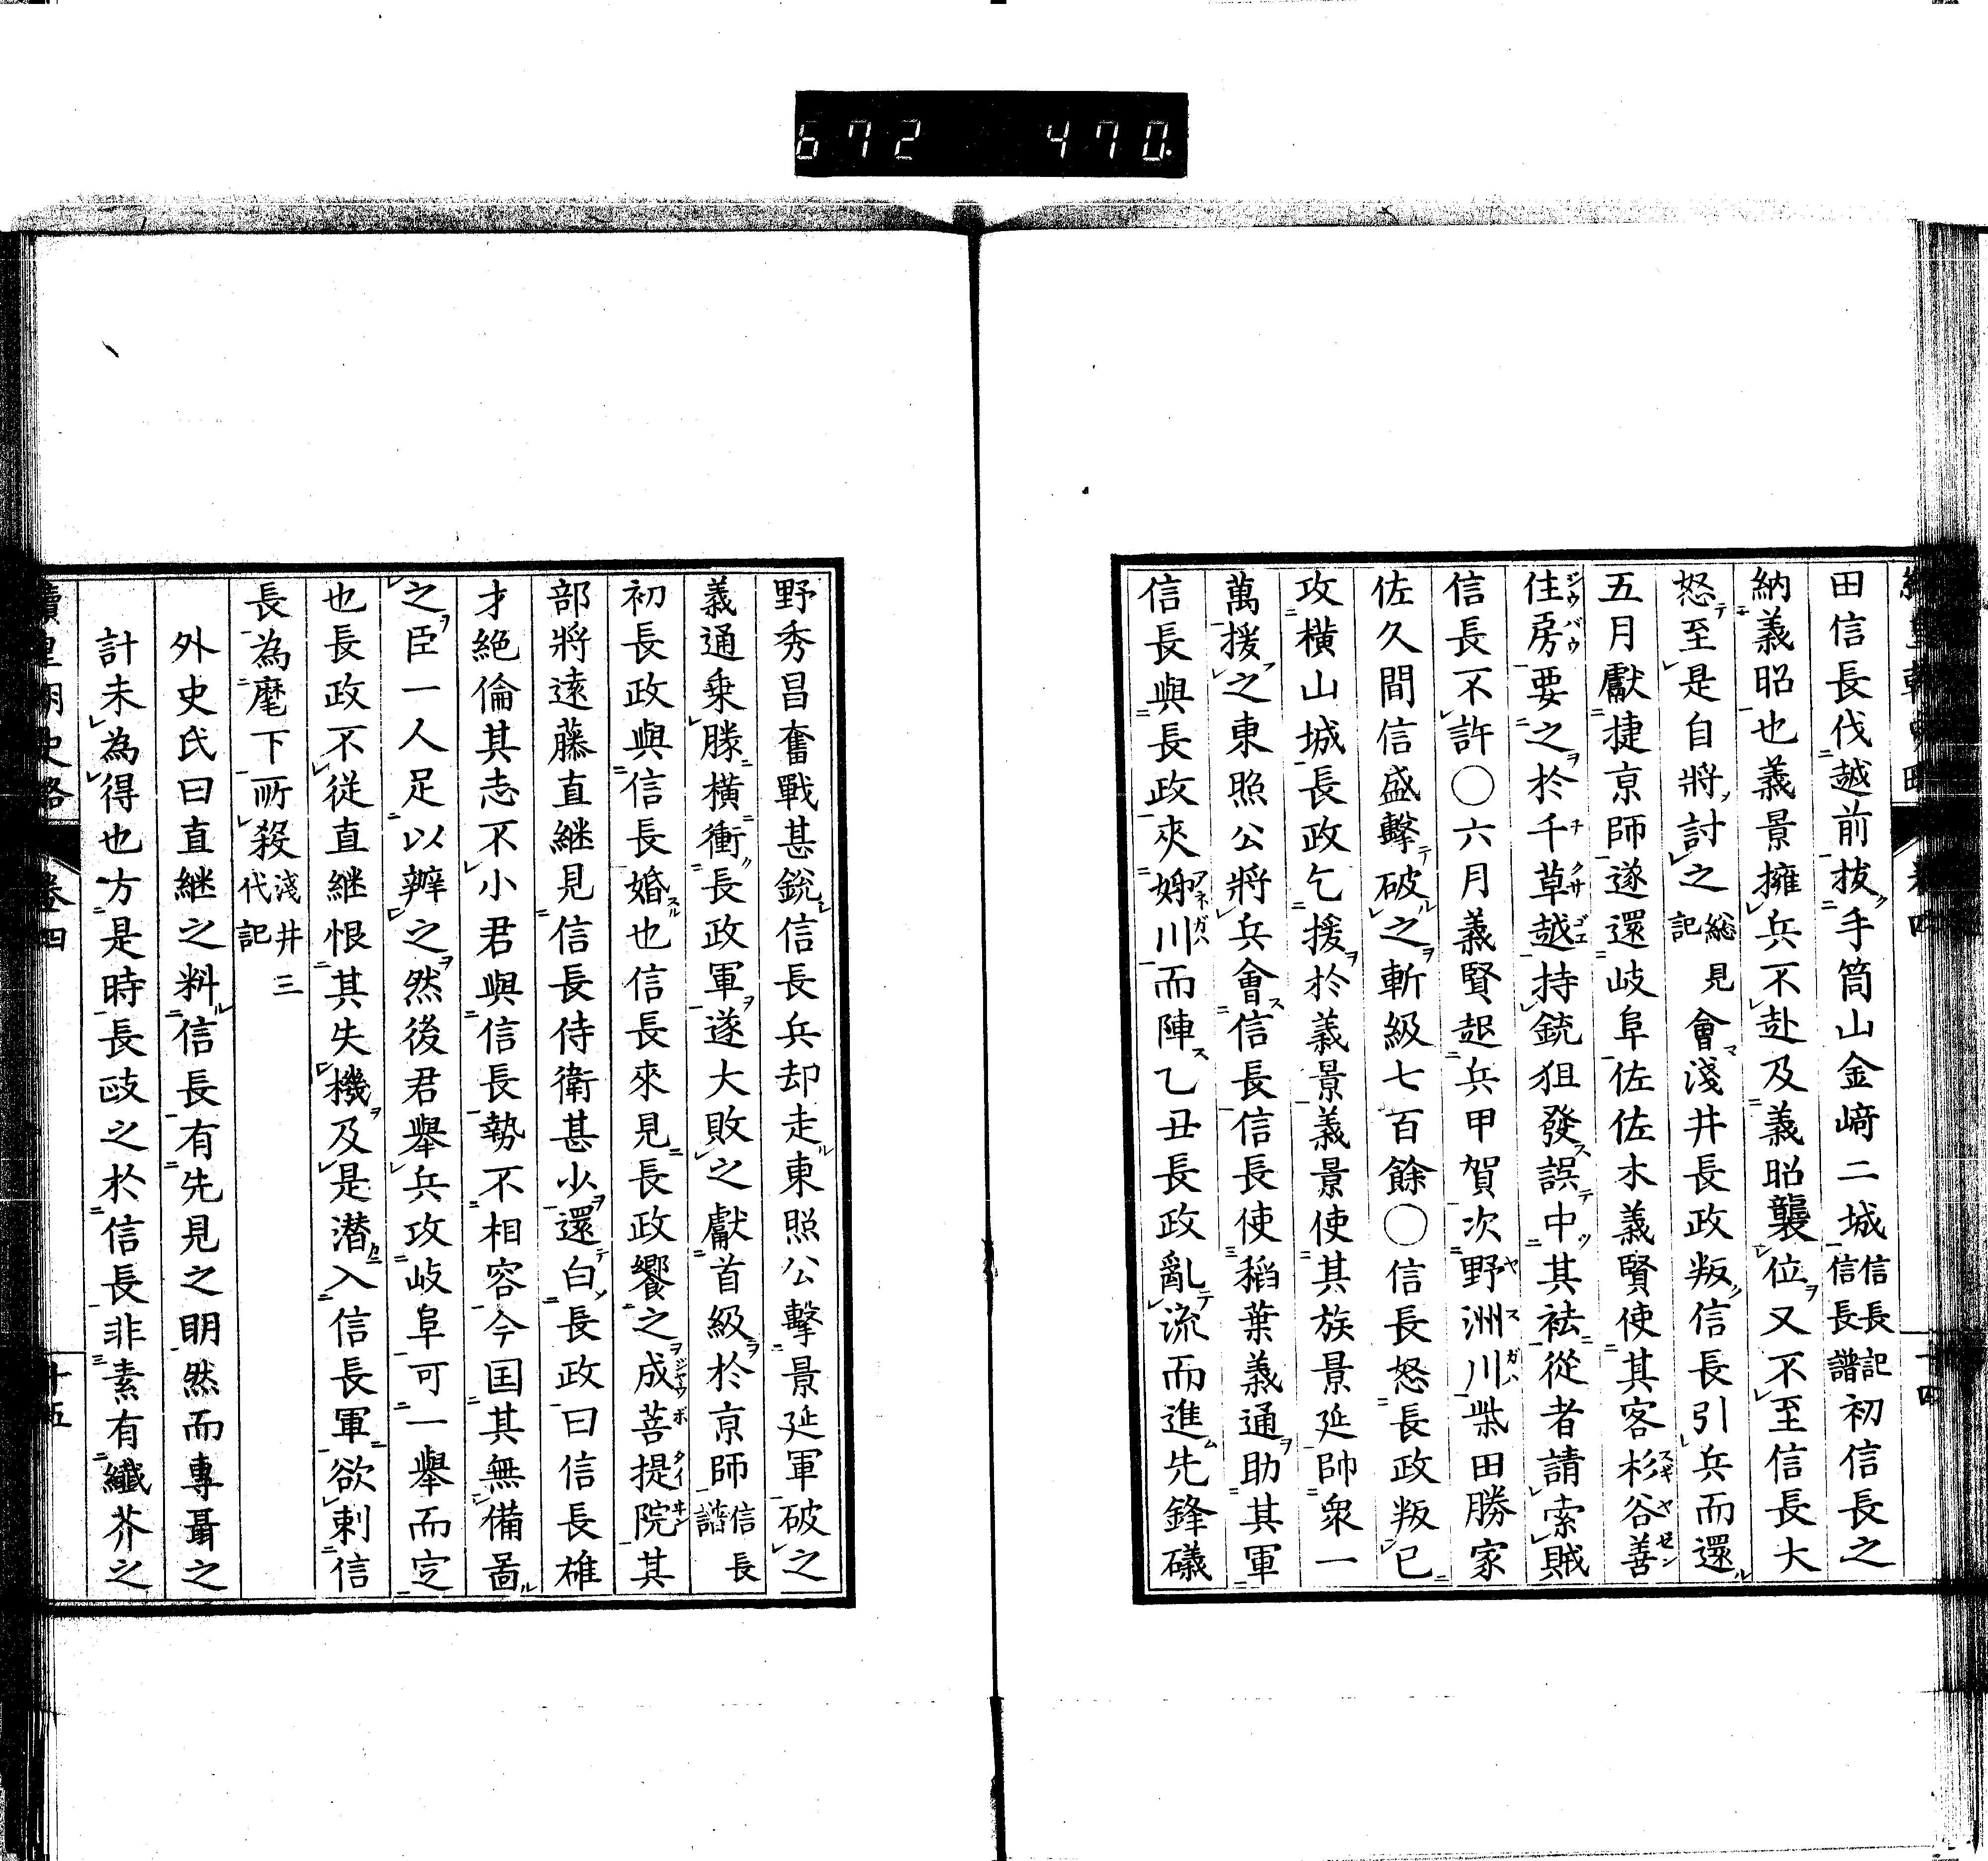 672 470.
田信長伐越前拔手筒山金﨑二城信長記信長譜初信長之
納義昭也義景擁兵不赴及義昭襲位又不至信長大
怒至是自將討之総見記會淺井長政叛信長引兵而還
五月獻捷京師遂還岐阜佐佐木義賢使其客杉谷善
住房要之於千草越持銃狙發誤中其袪從者請索賊
信長不許〇六月義賢起兵甲賀次野洲川柴田勝家
佐久間信盛擊破之斬級七百餘〇信長怒長政叛已
攻横山城長政乞援於義景義景使其族景延帥衆一
萬援之東照公將兵會信長信長使稻葉義通助其軍
信長與長政夾姉川而陣乙丑長政亂流而進先鋒礒
野秀昌奮戰甚銳信長兵却走東照公擊景延軍破之
義通乗勝橫衝長政軍遂大敗之獻首級於京師信長譜
初長政與信長婚也信長來見長政饗之成菩提院其
部將遠藤直継見信長侍衛甚少還白長政曰信長雄
才絕倫其志不小君與信長勢不相容今囯其無備啚
之臣一人足以辨之然後君舉兵攻岐阜可一舉而定
也長政不從直継恨其失機及是潛入信長軍欲刺信
長為麾下所殺淺井三代記
外史氏曰直継之料信長有先見之明然而專聶之
計未為得也方是時長政之於信長非素有纖芥之
續皇朝史略 卷四 十五